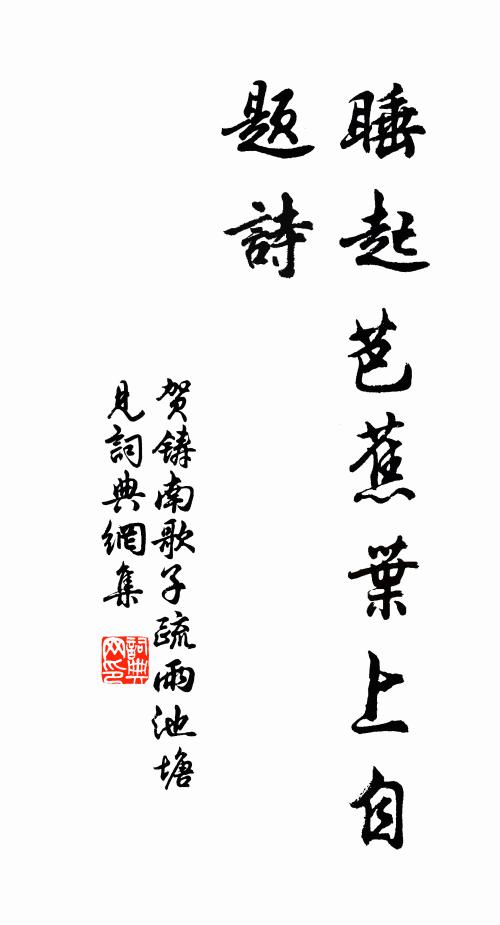 睡起芭蕉葉上自
題詩
贺鑄南歌子疏雨池塘
見詞典網集
詞典
网印